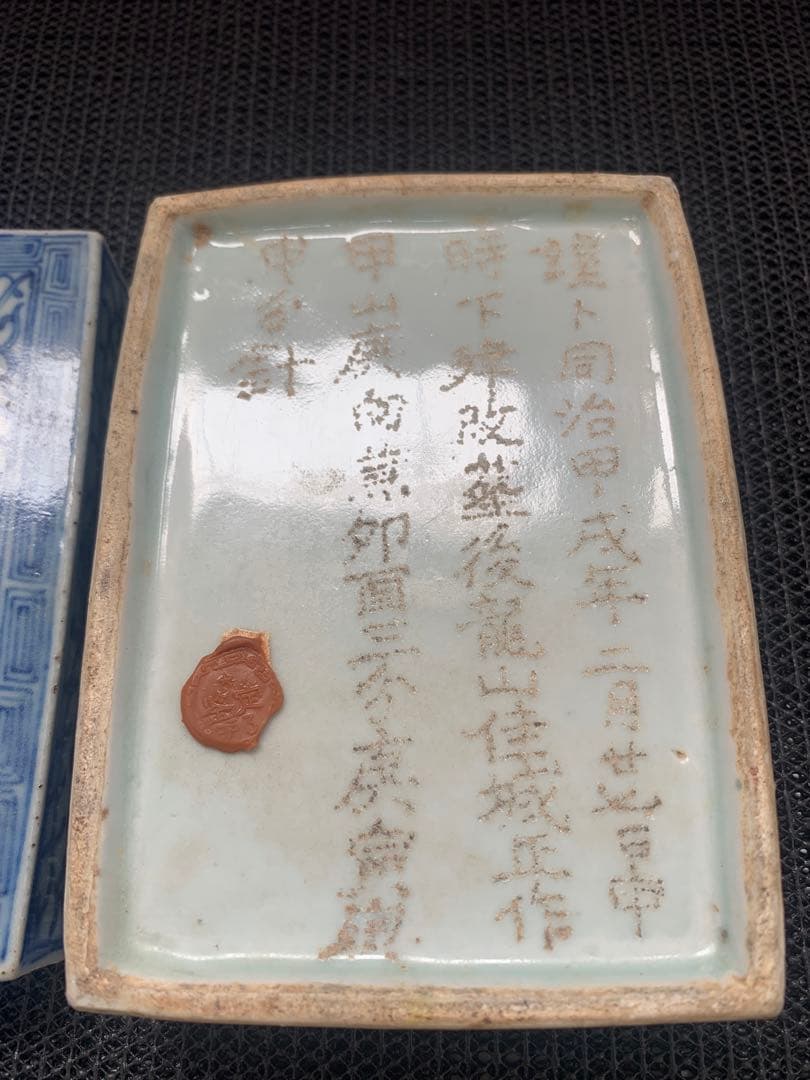 謹卜同治甲戌年二月廿九日申
時下肂改塟後龍山佳城正作
甲山庚向兼卯酉三分庚寅庚
申分針